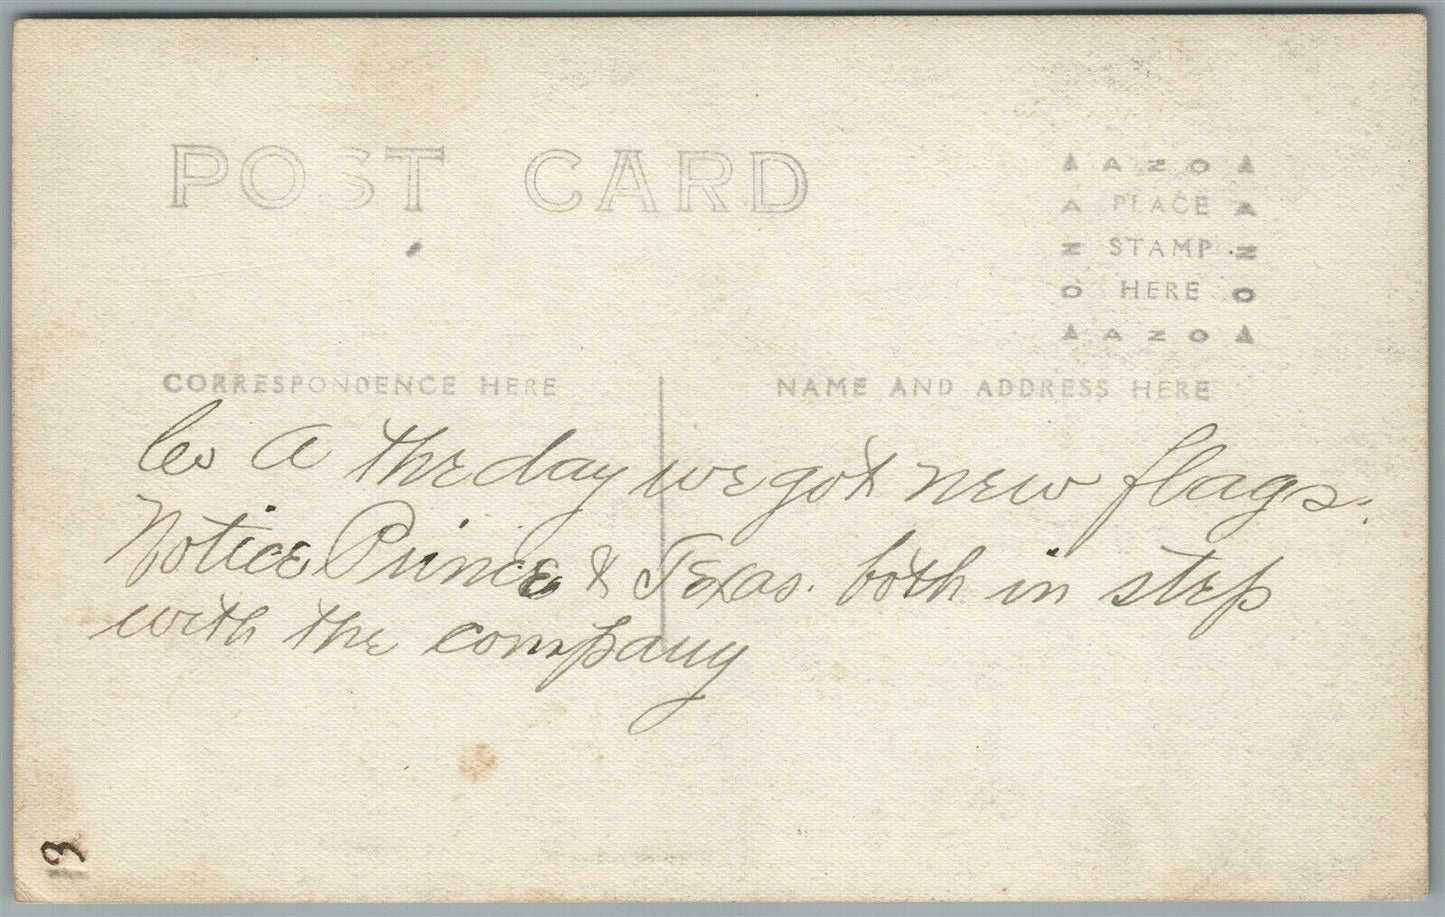 POST CARD
AZO
PLACE
STAMP
HERE
AZO
AZO
AZO
CORRESPONDENCE HERE
NAME AND ADDRESS HERE
Co A the day we got new flags.
Notice Prince & Texas. both in step
with the company
13